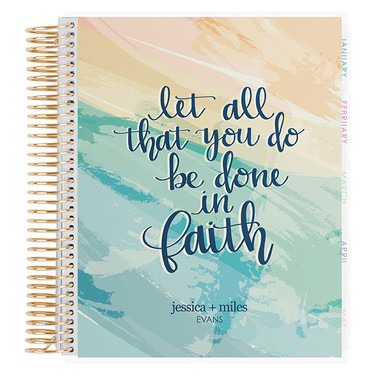 let all
that you do
be done
in
faith
jessica + miles
EVANS
JANUARY
FEBRUARY
MARCH
APRIL
MAY